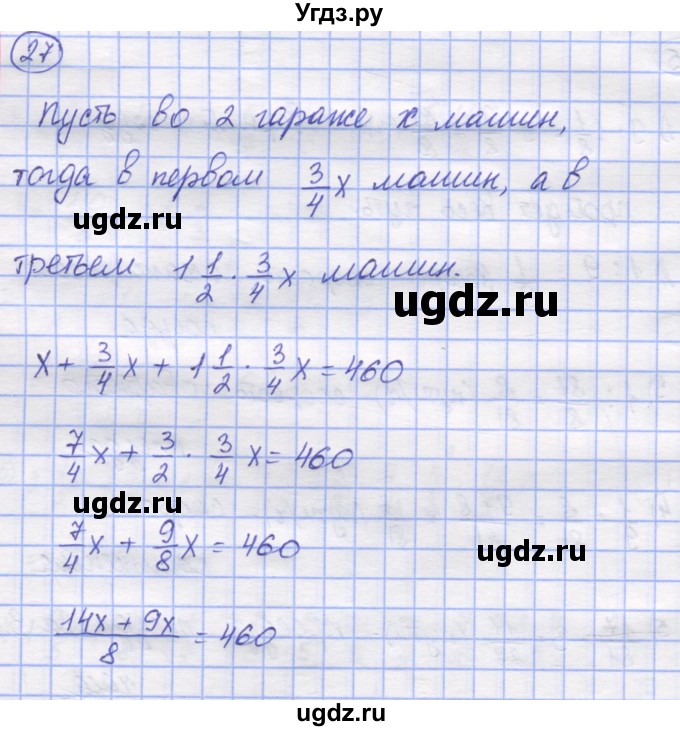 Угдз.ру
27
Пусть во 2 гараже x машин,
тогда в первом 3/4 x машин, а в
ugdz.ru
третьем 1 1/2 · 3/4 x машин.
ugdz.ru
x + 3/4 x + 1 1/2 · 3/4 x = 460
7/4 x + 3/2 · 3/4 x = 460
ugdz.ru
7/4 x + 9/8 x = 460
(14x + 9x)/8 = 460
ugdz.ru